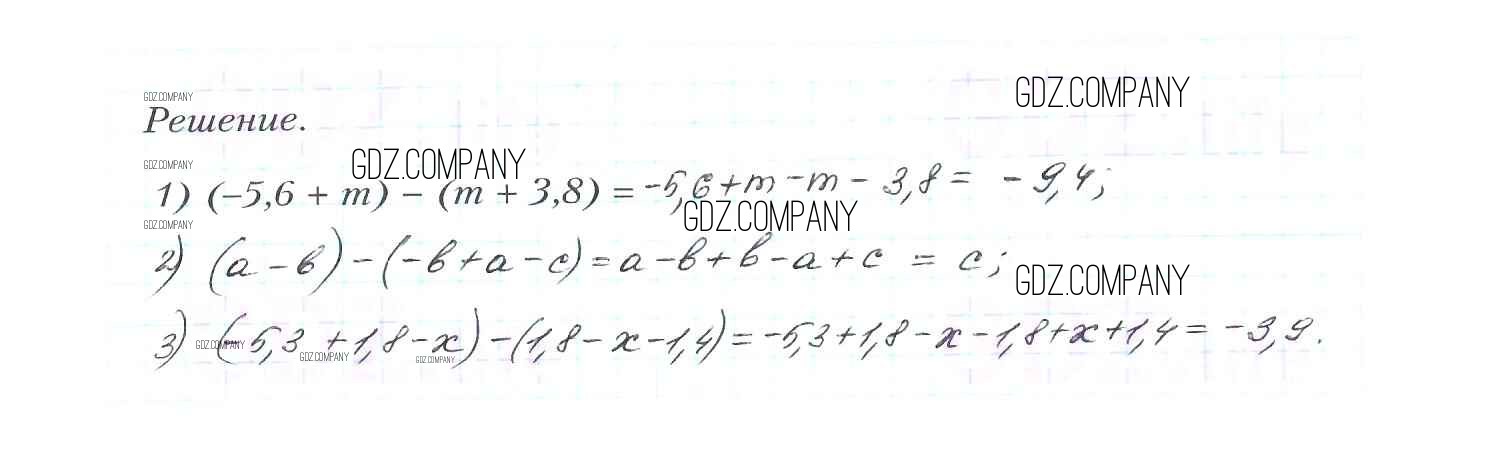 GDZ.COMPANY
GDZ.COMPANY
Решение.
GDZ.COMPANY
GDZ.COMPANY
1) (–5,6 + m) – (m + 3,8) = -5,6+m-m-3,8 = -9,4;
GDZ.COMPANY
GDZ.COMPANY
2) (a-в)-(-в+a-c)=a-в+в-a+c = c;
GDZ.COMPANY
3) (-5,3+1,8-x)-(1,8-x-1,4)=-5,3+1,8-x-1,8+x+1,4=-3,9.
GDZ.COMPANY
GDZ.COMPANY
GDZ.COMPANY